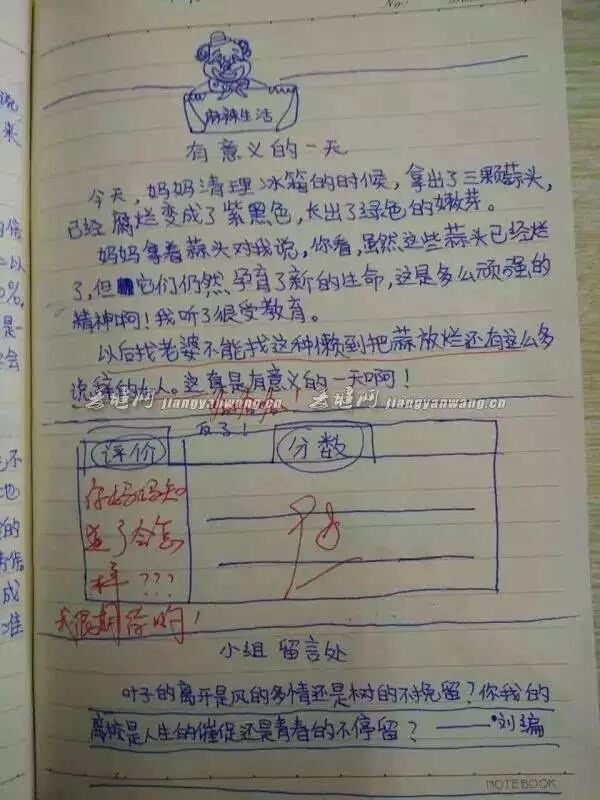 No:
麻辣生活
有意义的一天
今天,妈妈清理冰箱的时候,拿出了三颗蒜头,
已经腐烂变成了紫黑色,长出了绿色的嫩芽。
妈妈拿着蒜头对我说,你看,虽然这些蒜头已经烂
了,但它们仍然孕育了新的生命,这是多么顽强的
精神啊!我听了很受教育。
以后找老婆不能找这种懒到把蒜放烂还有这么多
说辞的女人。这真是有意义的一天啊!
去建网 jiangyanwang.cn
去建网 jiangyanwang.cn
反了!
评价
分数
你妈妈知
道了会怎
样???
我很期待哟!
小组留言处
叶子的离开是风的多情还是树的不挽留?你我的
离校是人生的催促还是青春的不停留? ——刘编
NOTEBOOK